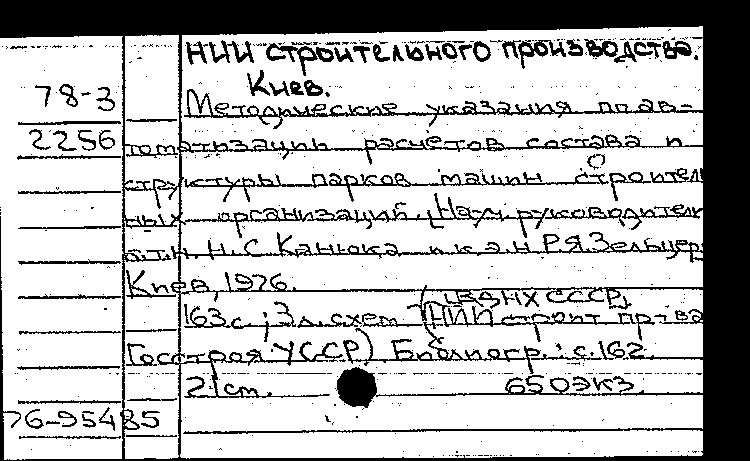 НИИ строительного производства.
Киев.
78-3 Методические указания по ав-
2256 томатизации расчетов состава и
структуры парков машин строитель
ных организаций. [Науч. руководители
к.т.н. Н.С. Канюка и к.э.н. Р.Я. Зельцер]
Киев, 1976.
(ВДНХ СССР,
163с.; 3л. схем (НИИ строит. пр-ва
Госстроя УССР) Библиогр.: с.162.
21см. 650экз.
76-95485